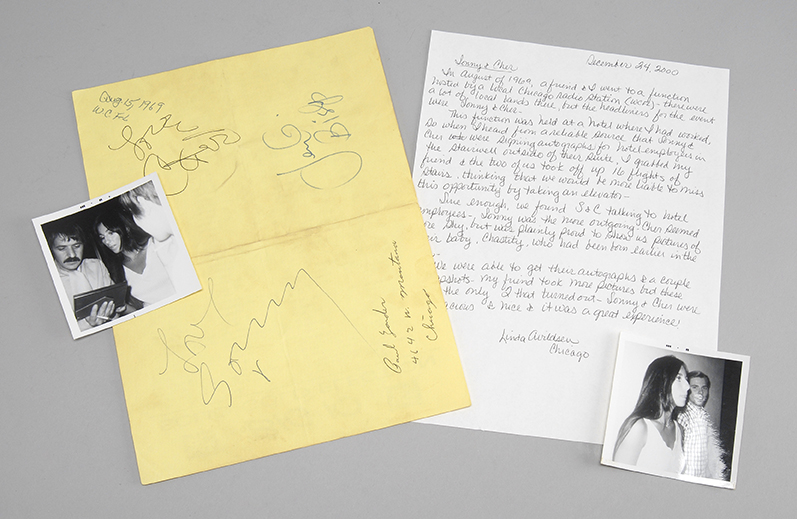 Aug 15, 1969
Love
Love
Sonny
Paul Gander
4642 N. Montana
Chicago
Sonny & Cher
December 24, 2000
In August of 1969, a friend & I went to a function
hosted by a local Chicago radio station (WCFL) - there were
a lot of local bands there, but the headliners for the event
were Sonny & Cher.
This function was held at a hotel where I had worked.
So when I heard from a reliable source that Sonny &
Cher were signing autographs for hotel employees in
the stairwell outside of their suite, I grabbed my
friend & the two of us took off up 16 flights of
stairs, thinking that we would be more liable to miss
this opportunity by taking an elevator -
Sure enough, we found S & C talking to hotel
employees - Sonny was the more outgoing - Cher seemed
shy, but was plainly proud to show us pictures of
baby, Chastity, who had been born earlier in the
We were able to get their autographs & a couple
snapshots - my friend took more pictures but these
the only 2 that turned out - Sonny & Cher were
& nice & it was a great experience!
Linda
Chicago